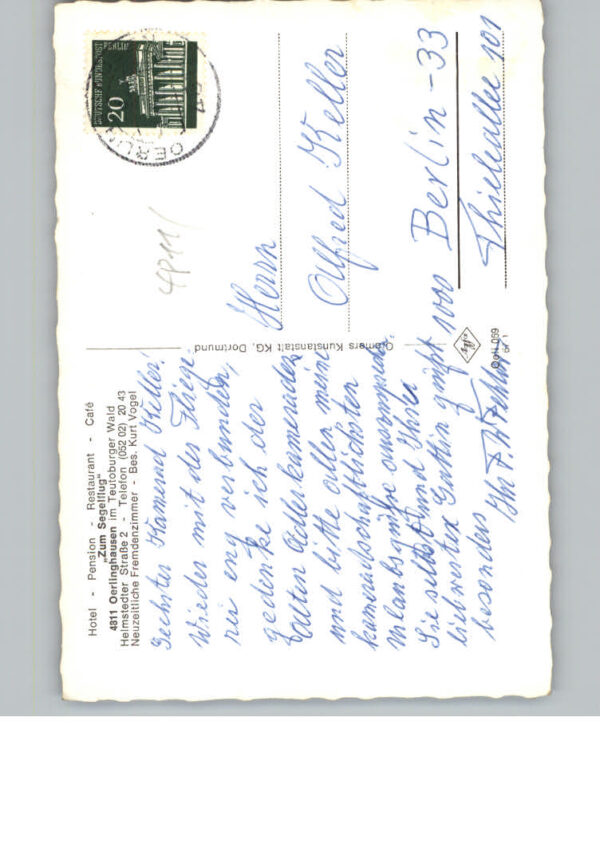 Hotel - Pension - Restaurant - Café
„Zum Segelflug"
4811 Oerlinghausen im Teutoburger Wald
Helmstedter Straße 2 - Telefon (052 02) 20 43
Neuzeitliche Fremdenzimmer - Bes. Kurt Vogel
Geehrter Kamerad Keller!
Wieder mit der Fliege-
rei eng verbunden,
gedenke ich der
Alten Adlerkameraden
und bitte allen meine
kameradschaftlichsten
Urlaubsgrüße
Sie selbst und Ihre
liebwerten Gattin grüßt
besonders
Ihr
Cramers Kunstanstalt KG, Dortmund
OoH 069
DEUTSCHE BUNDESPOST BERLIN
20
OERLIN
4811
Herrn
Alfred Keller
1000 Berlin - 33
Thielallee 101